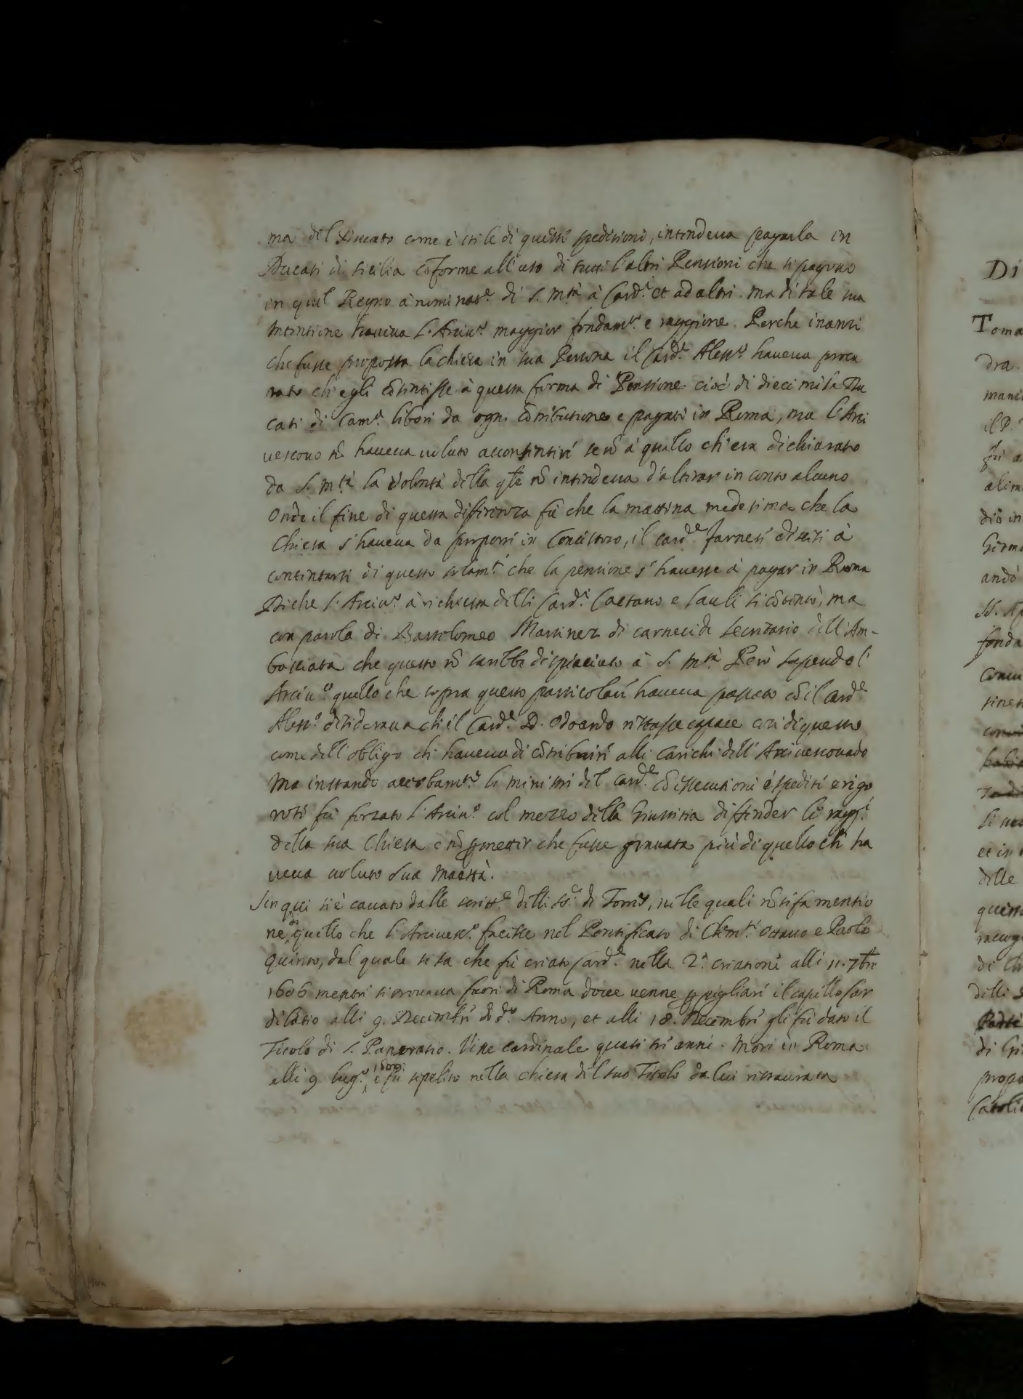 ma del Ducato come è stile di queste speditioni, intendeua pagarla in
Ducati di Sicilia cõforme all'uso di tutti l'altri Pensioni che si pagano
in quel Regno à nominat.e di S. M.tà à Card.i et ad altri. ma di tale sua
intentione haueua l'Arciu.o maggior fondam.to e raggione. Perche inanzi
che fusse proposta la chiesa in sua Persona il Card.e Aless.o haueua procu
rato ch'egli cõsentisse à questa forma di Pensione cioè di dieci mila Du
cati di Cam.a liberi da ogni cõtributione e pagati in Roma, ma l'Arci
uescouo nõ haueua uoluto acconsentire se nõ à quello ch'era dichiarato
da S. M.tà la Volontà della q.le nõ intendeua d'alterar in conto alcuno
Onde il fine di questa differenza fù che la mattina medesima che la
Chiesa s'haueua da proporre in Concistoro, il Card.le Farnese
contentarsi di questo che la pensione s'hauesse à pagar in Roma
Di che l'Arciu.o à richiesta delli Card.i Caetano e Sauli si cõtentò, ma
con parola di Bartolomeo Martinez di Carnecede secretario dell'Am-
basciata che questo nõ sarebbe dispiaciuto à S. M.tà Però sapendo l'
Arciu.o quello che sopra questo particolare haueua passato cõ il Card.le
Aless.o desideraua che il Card.e D. Odoardo restasse capace così di questo
come dell'obligo che haueua di cõtribuire alli Carichi dell'Arciuescouado
Ma instando li ministri del Card.le cõ essecutioni espedite e rigo
rose fù forzato l'Arciu.o col mezzo della Giustitia diffender le ragg.i
della sua Chiesa e nõ ꝑmetter che fusse grauata più di quello che ha
ueua uoluto Sua Maestà.
Sin qui si è cauato dalle scritt.e delli SS.ri di Torres, nelle quali nõ si fa mentio
ne di quello che l'Arciuesc.o facesse nel Pontificato di Clem.te Ottauo e Paolo
Quinto, dal quale si sa che fù creato Card.e nella 2.a creatione alli 11. 7bre
1606 mentre si trouaua fuori di Roma doue uenne ꝑ pigliare il capello Car
dinalitio alli 9. Decembre di d.o Anno, et alli 18. Decembre gli fù dato il
Titolo di S. Pancratio. Visse cardinale quasi tre anni. Morì in Roma
alli 9. lug.o 1609. e fù sepelito nella chiesa del suo Titolo da lui ristaurata
Di
Toma
dra
mani
alim
dio in
andò
fonda
delle
quest
racog
di Ch
delli
propo
Catoli